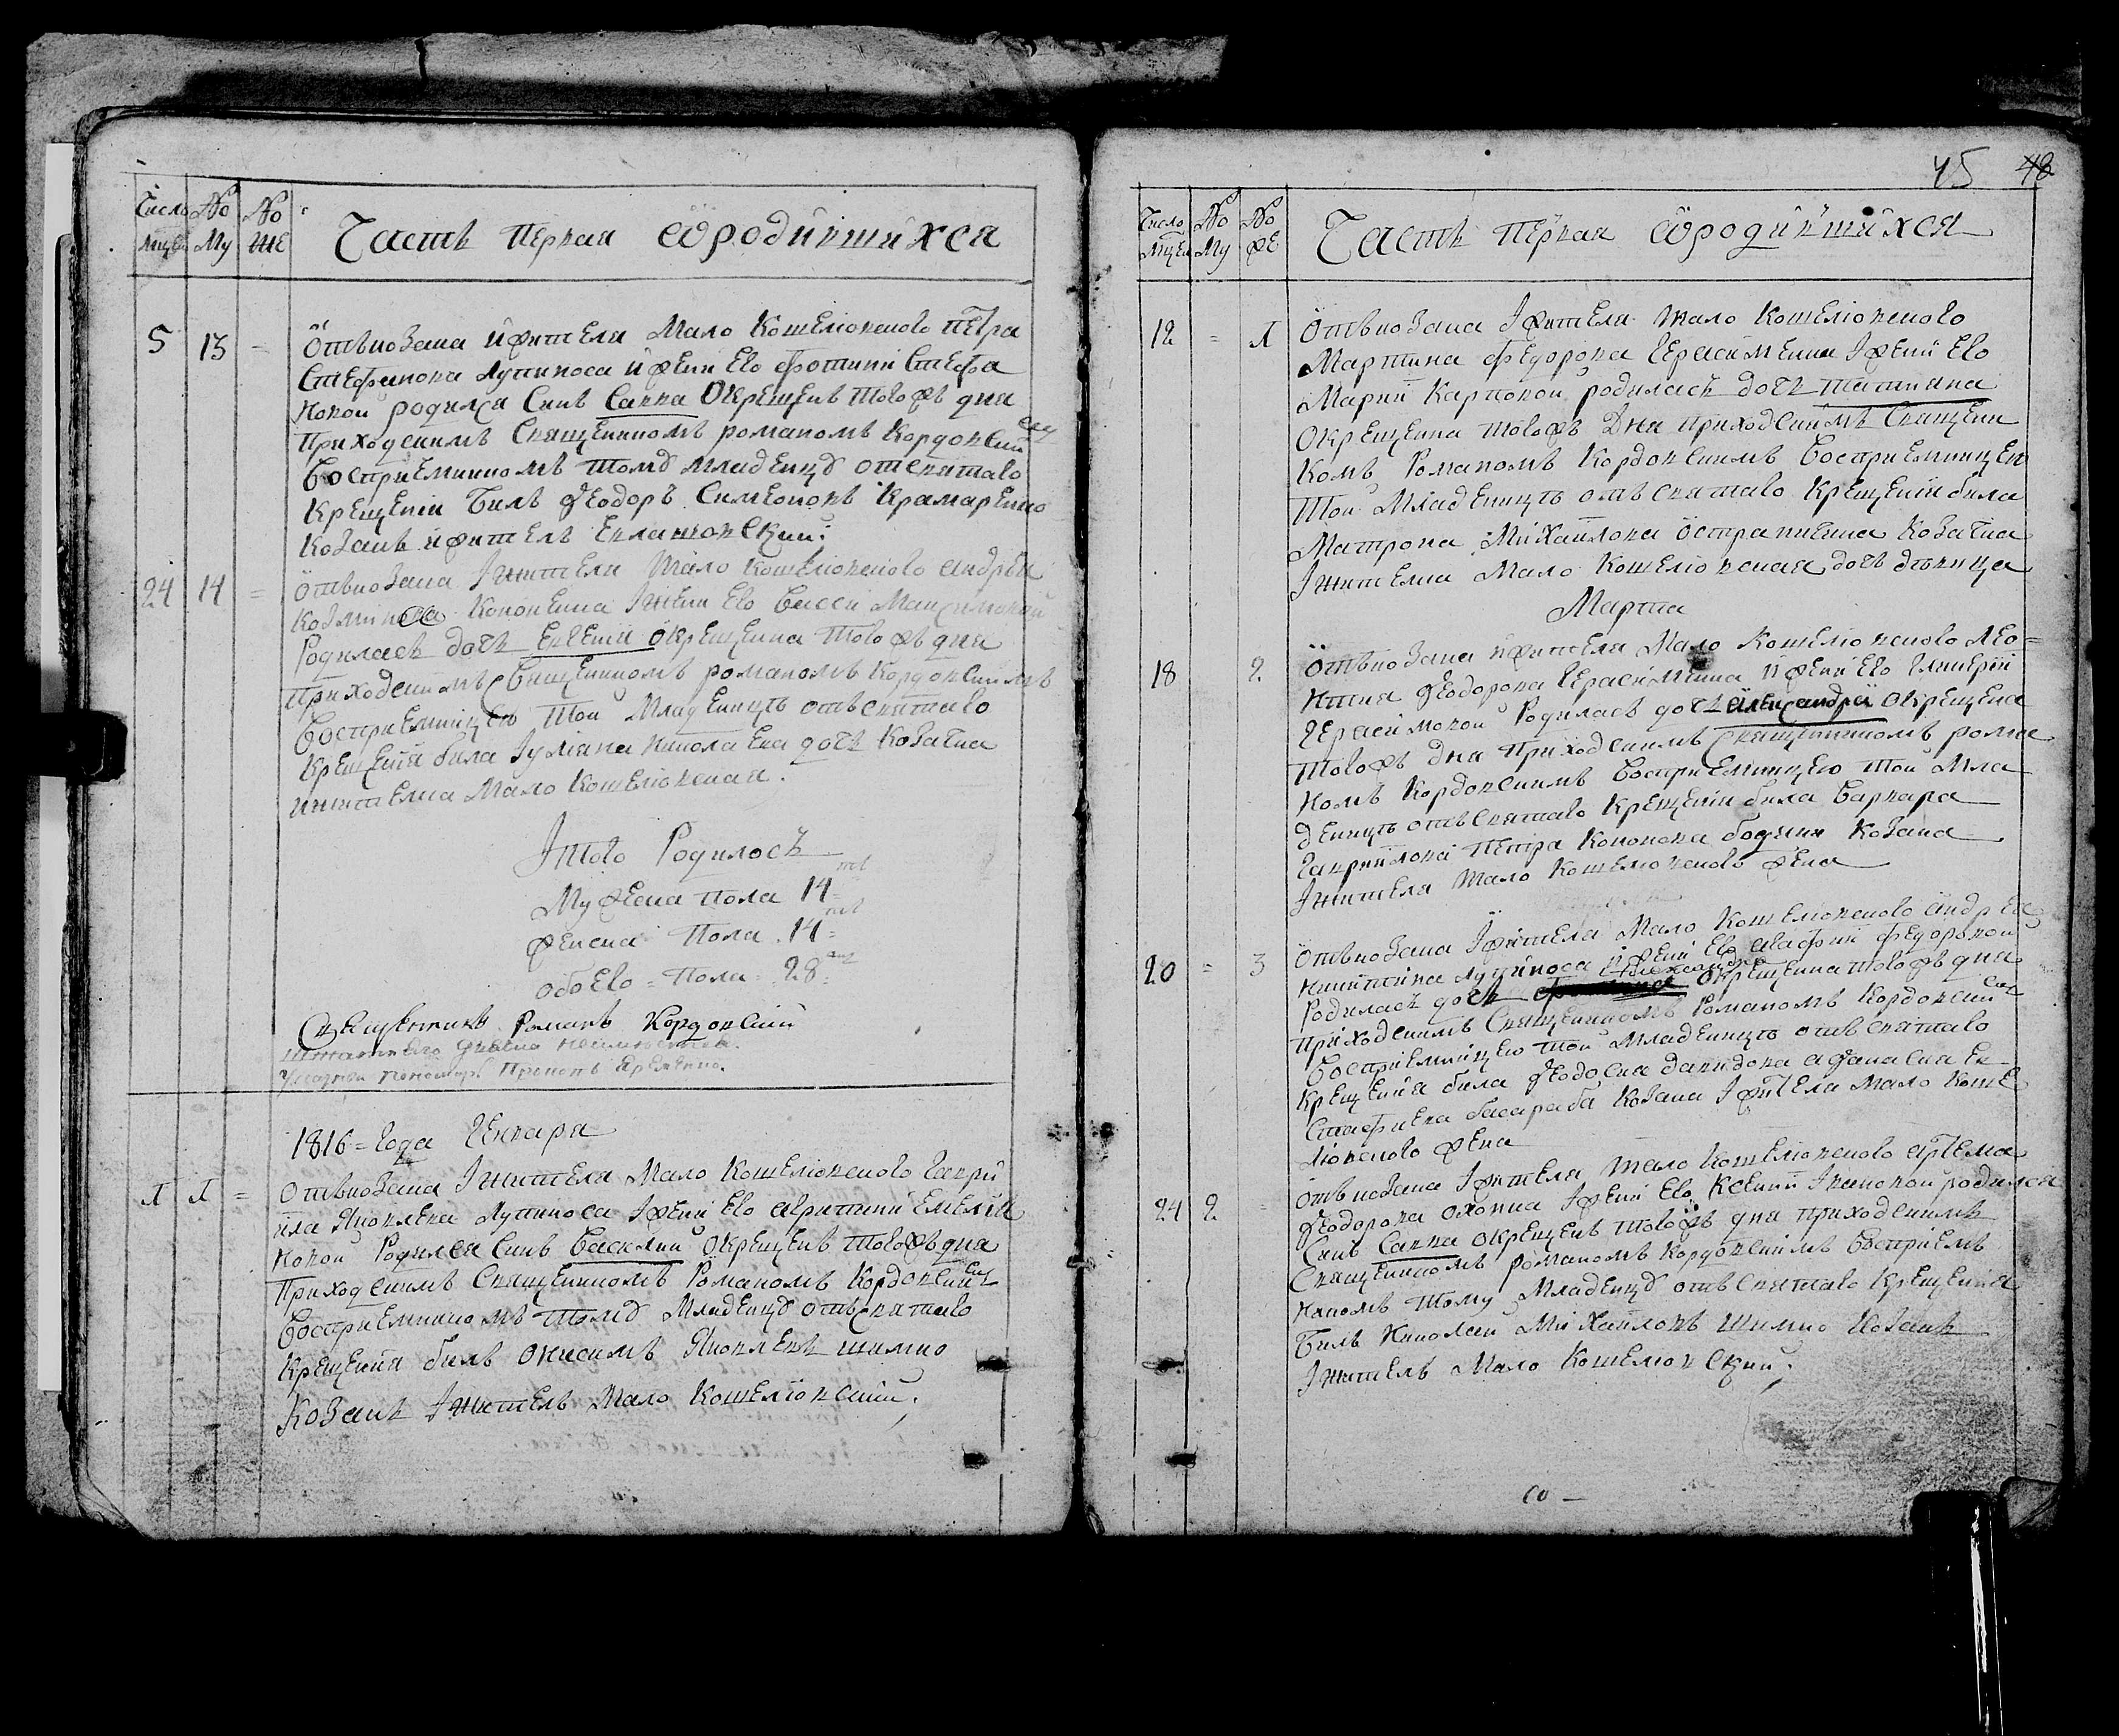 Число Мцей
No Му
No Же
Часть Первая ѡродившихся
5 13 =
Отъ козака и жителя Мало Кошелювского Петра
Стефанова Лупикоса и жени его Фотинії Стефа
новой родился синъ Савва окрещенъ тогожъ дня
приходскимъ Священникомъ романомъ Кордовским
Восприемникомъ тому младенцу от святаго
крещенія билъ Ѳеодоръ Симеоновъ Крамаренко
козакъ и житель
24 14 =
Отъ козака Іжителя Мало Кошелювского Андрея
Козмин Іжени его Васси Максимовой
Родилась дочь Евгенія окрещенна тогожъ дня
приходскимъ Священникомъ романомъ Кордовскимъ
Восприемницею той младеницѣ отъ святаго
крещенія била Іуліана Николаева дочь козачка
жителка Мало Кошелювская.
Ітого Родилось
Мужеска пола 14
женска пола 14 =
обоего = пола = 28
Священникъ Романъ Кордовский
1816 = Года Генваря
1 1 =
Отъ козака Іжителя Мало Кошелювского Гаври
ила Яковлева Лупикоса Іжени его Емелия
новой Родился синъ Василий окрещенъ тогожъ дня
Приходскимъ Священникомъ Романомъ Кордовским
Восприемникомъ тому младенцу отъ святаго
крещенія билъ Онисимъ Яковлевъ Шимко
Козакъ Іжитель Мало Кошелювский.
45 48
Число Мцей
No Му
No Же
Часть Первая ѡродившихся
12 = 1
Отъ козака Іжителя Мало Кошелювского
Мартина Федорова Герасименка Іжени его
Марии Карповой родилась дочь Татияна
окрещенна тогожъ дня приходскимъ Священи
комъ Романомъ Кордовскимъ Восприемницею
той младеницѣ отъ святаго крещенія била
Матрона Михайлова козачка
Іжителка Мало Кошелювская дочь дѣвица
Марта
18 2
Отъ козака и жителя Мало Кошелювского Лео=
нтия Ѳеодорова Герасименка и жени его Гликерии
Герасимовой Родилась дочь Александра окрещена
тогожъ дня приходскимъ Священникомъ рома
номъ Кордовскимъ Восприемницею той мла
деницѣ отъ святаго крещенія била Варвара
Гавриилова Петра Кононова козака
Іжителя Мало Кошелювского жена
20 = 3
Отъ козака Іжителя Мало Кошелювского Андрея
Никитина Лупикоса и жени его Агафии Федоровой
Александра
Родилась дочь окрещенна тогожъ дня
приходскимъ Священникомъ Романомъ Кордовским
Восприемницею той младеницѣ отъ святаго
крещенія била Ѳеодосиа Давидова Афанасиа Ев-
стафиева Басараба козака Іжителя Мало Коше
лювского жена
24 2
Отъ козака Іжителя Мало Кошелювского Артема
Ѳеодорова Іжени его Ксении Івановой родился
синъ Савва окрещенъ тогожъ дня приходскимъ
Священникомъ романомъ Кордовскимъ Восприем
никомъ тому младенцу отъ святаго крещения
билъ Николай Михайловъ Шимко козакъ
Іжитель Мало Кошелювский.
со —